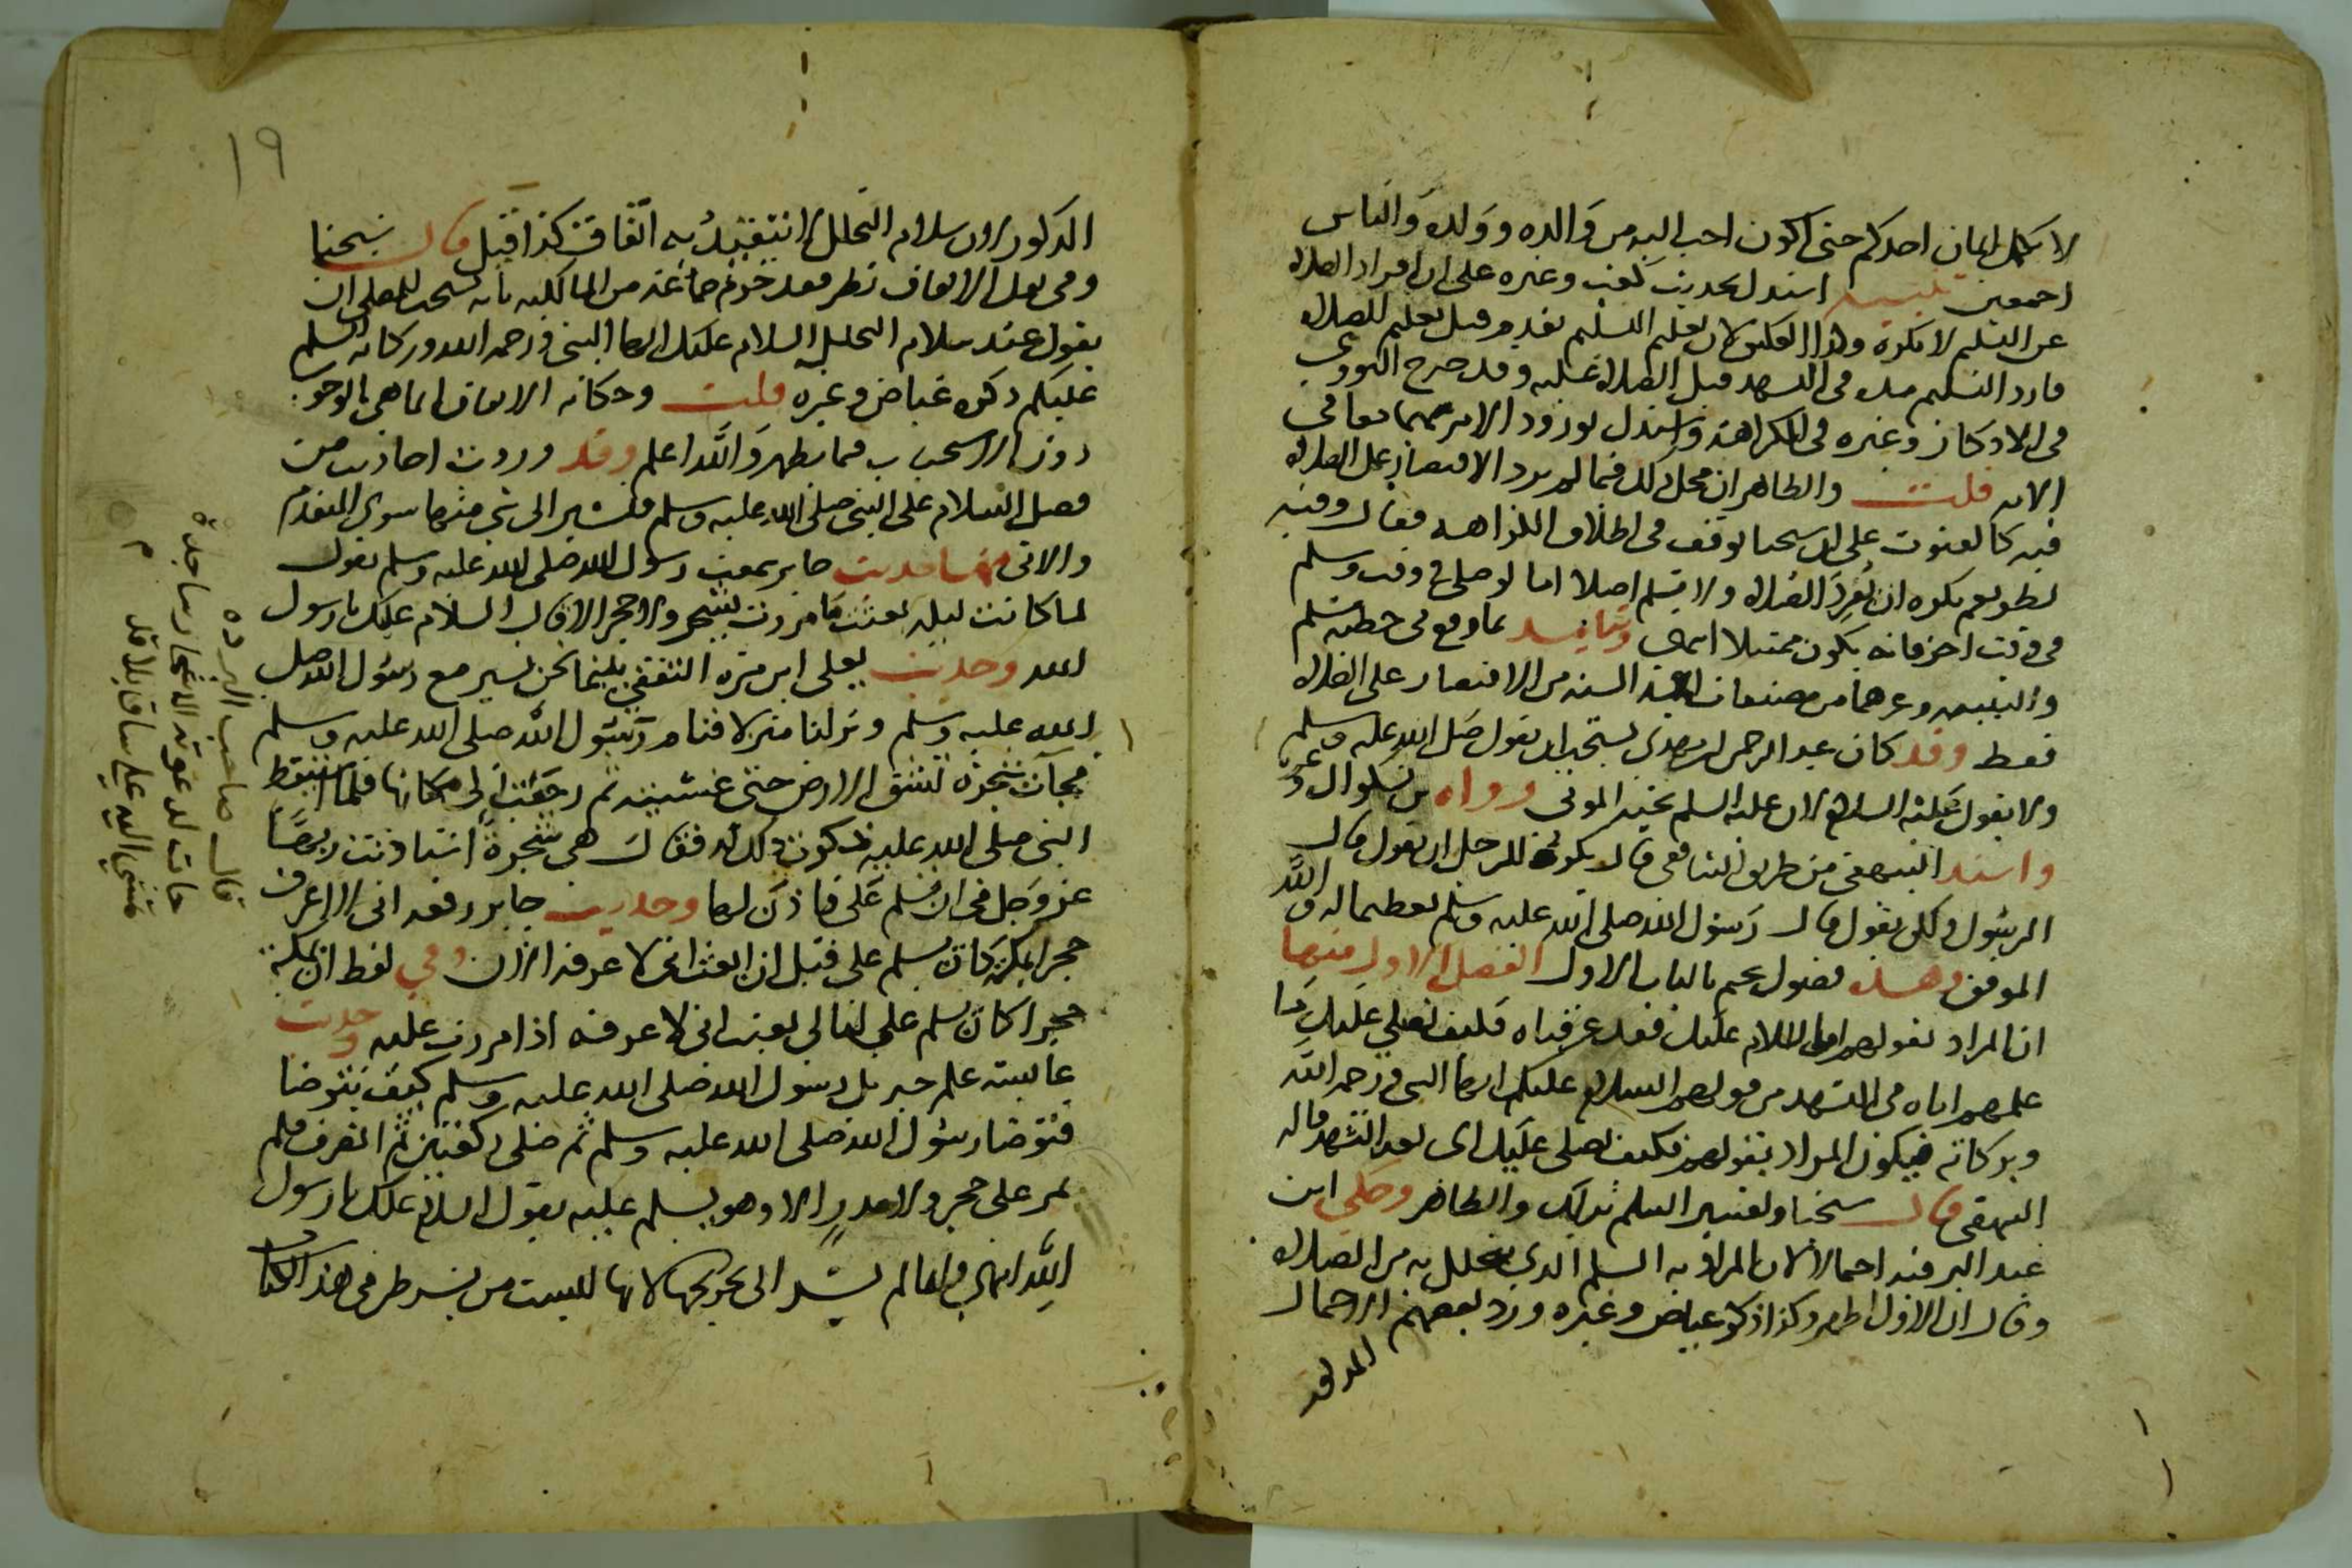 لا يكمل ايمان احدكم حتى اكون احب اليه من والده وولده والناس
اجمعين تنبيه استدل بحديث كعب وغيره على ان افراد الصلاة
عن التسليم لا يكره وهذا العكس لان تعليم التسليم تقدم قبل تعليم الصلاة
فافرد التسليم مدة في التشهد قبل الصلاة عليه وقد صرح النووي
في الاذكار وغيره في الكراهة واستدل بورود الامر بهما معا في
الاية قلت والظاهر ان محل ذلك فيما لم يرد الاقتصار على الصلاة
فيه كالقنوت على ان شيخنا توقف في اطلاق الكراهة فقال وفيه
نظر نعم يكره ان يفرد الصلاة ولا يسلم اصلا اما لو صلى في وقت وسلم
في وقت اخر فانه يكون ممتثلا انتهى ويتايد بما وقع في خطبة مسلم
والتنبيه وغيرهما من مصنفات ائمة السنة من الاقتصار على الصلاة
فقط وقد كان عبد الرحمن بن مهدي يستحب ان يقول صلى الله عليه وسلم
ولا يقول عليه السلام لان عليه السلم تحية الموتى رواه بن بشكوال وغيره
واسند البيهقي من طريق الشافعي قال يكره للرجل ان يقول قال
الرسول ولكن يقول قال رسول الله صلى الله عليه وسلم تعظيما له والله
الموفق وهذه فصول نختم بالباب الاول الفصل الاول منها
ان المراد بقولهم اما السلام عليك فقد عرفناه فكيف نصلي عليك ما
علمهم اياه في التشهد من قولهم السلام عليك ايها النبي ورحمة الله
وبركاته فيكون المراد بقولهم فكيف نصلي عليك اي بعد التشهد قاله
البيهقي قال شيخنا وتفسير السلم بذلك والظاهر وحكى ابن
عبد البر فيه احتمالا ان المراد به السلم الذي يتحلل به من الصلاة
وقال ان الاول اظهر وكذا ذكره عياض وغيره ورد بعضهم الاحتمال
المذكور
١٩
المذكور لان سلام التحلل لا يتقيد به اتفاقا كذا قيل قال شيخنا
وفي نقل الاتفاق نظر فقد جزم جماعة من المالكية بانه يستحب للمصلي ان
يقول عند سلام التحلل السلام عليك ايها النبي ورحمة الله وبركاته السلم
عليكم ذكره عياض وغيره قلت وحكاية الاتفاق انما هي بالوجوب
دون الاستحباب فيما يظهر والله اعلم وقد وردت احاديث من
فضل السلام على النبي صلى الله عليه وسلم فلنشير الى شي منها سوى المتقدم
والاتي فمنها حديث جابر سمعت رسول الله صلى الله عليه وسلم يقول
لما كانت ليلة بعثت ما مررت بشجر ولا حجر الا قال السلام عليك يا رسول
الله وحديث يعلى ابن مرة الثقفي بينما نحن نسير مع رسول الله صلى
الله عليه وسلم ونزلنا منزلا فنام رسول الله صلى الله عليه وسلم
فجآت شجرة تشق الارض حتى غشيته ثم رجعت الى مكانها فلما استيقظ
النبي صلى الله عليه فذكرت ذلك له فقال هي شجرة استاذنت ربها
عز وجل في ان تسلم علي فاذن لها وحديث جابر رفعه اني لاعرف
حجرا بمكة كان يسلم علي قبل ان ابعث اني لاعرفه الان وفي لفظ ان بمكة
حجرا كان يسلم علي ليالي بعثت اني لاعرفه اذا مررت عليه وحديث
عايشة علم جبريل رسول الله صلى الله عليه وسلم كيف يتوضا
فتوضا رسول الله صلى الله عليه وسلم ثم صلى ركعتين ثم انصرف فلم
يمر على حجر ولا مدر الا وهو يسلم عليه يقول السلام عليك يا رسول
الله انتهى وانما لم نشر الى تخريجها لانها ليست من شرط هذا الكتاب
قال صاحب البردة
جات لدعوته الاشجار ساجدة
تمشي اليه على ساق بلا قدم